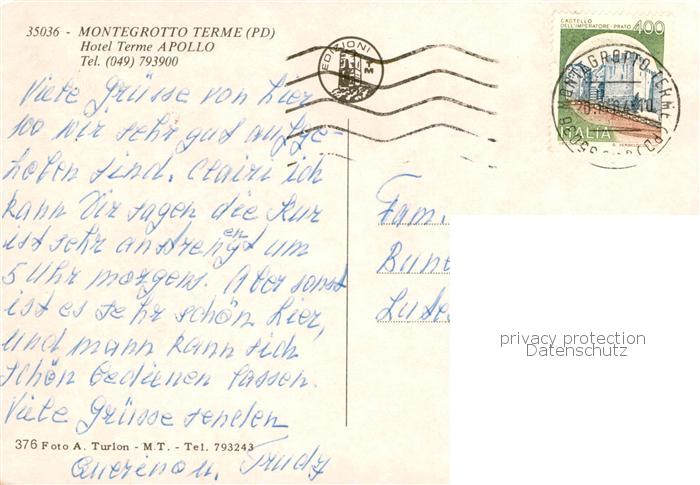 35036 - MONTEGROTTO TERME (PD)
Hotel Terme APOLLO
Tel. (049) 793900
Viele Grüsse von hier
wo wir sehr gut aufge-
hoben sind. Clairi ich
kann Dir sagen die Kur
ist sehr anstrengend um
5 Uhr morgens. Aber sonst
ist es sehr schön hier,
und mann kann sich
schön bedienen lassen.
Viele Grüsse senden
376 Foto A. Turlon - M.T. - Tel. 793243
Querino u. Trudy
EDIZIONI
TM
CASTELLO
DELL'IMPERATORE - PRATO
400
ITALIA
MONTEGROTTO TERME (PD)
Fam.
privacy protection
Datenschutz